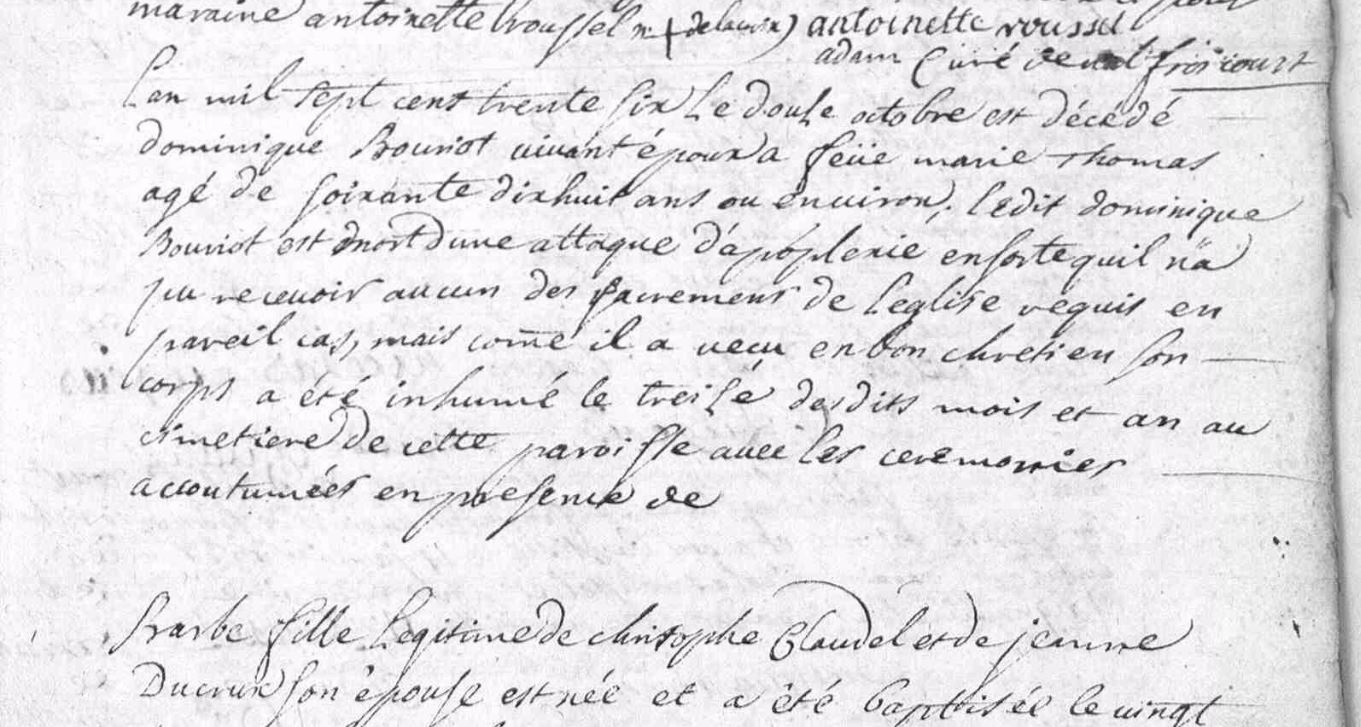 maraine antoinette troussel m + (de lacroix) antoinette roussel
adam Curé de froicourt
Lan mil sept cent trente six Le douse octobre est décédé
dominique Bouriot vivant époux a feüe marie thomas
agé de soixante dixhuit ans ou environ, ledit dominique
Bouriot est mort dune attaque d'apoplexie ensorte quil na
pu recevoir aucun des sacremens de leglise requis en
pareil cas, mais come il a vecu en bon chretien son
corps a été inhumé le treise desdits mois et an au
cimetiere de cette paroisse avec les ceremonies
accoutumées en presence de
Barbe fille legitime de christophe Claudel et de jeanne
Ducrux son épouse est née et a été baptisée le vingt